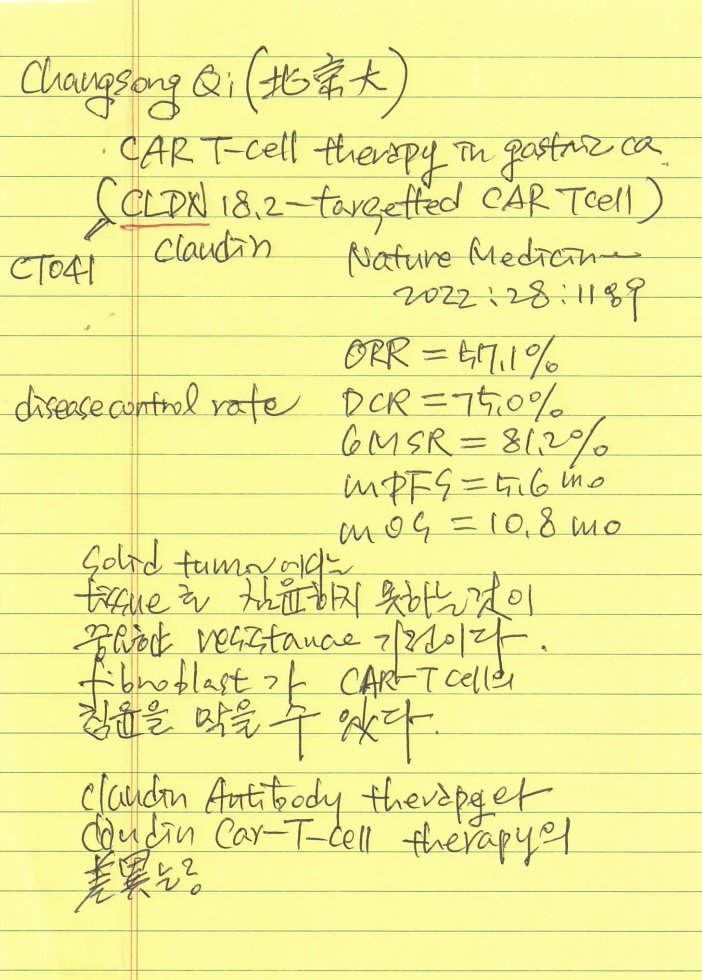 Changsong Qi (北京大)
· CAR T-cell therapy in gastric ca.
(CLDN 18.2-targetted CAR Tcell)
CT041 claudin
Nature Medicine
2022:28:1189
ORR = 57.1%
disease control rate DCR = 75.0%
6MSR = 81.2%
mPFS = 5.6 mo
mOS = 10.8 mo
Solid tumor에서는
tissue로 침윤하지 못하는것이
중요한 resistance 기전이다.
fibroblast가 CAR-T cell의
침윤을 막을 수 있다.
claudin Antibody therapy와
claudin Car-T-cell therapy의
差異는?